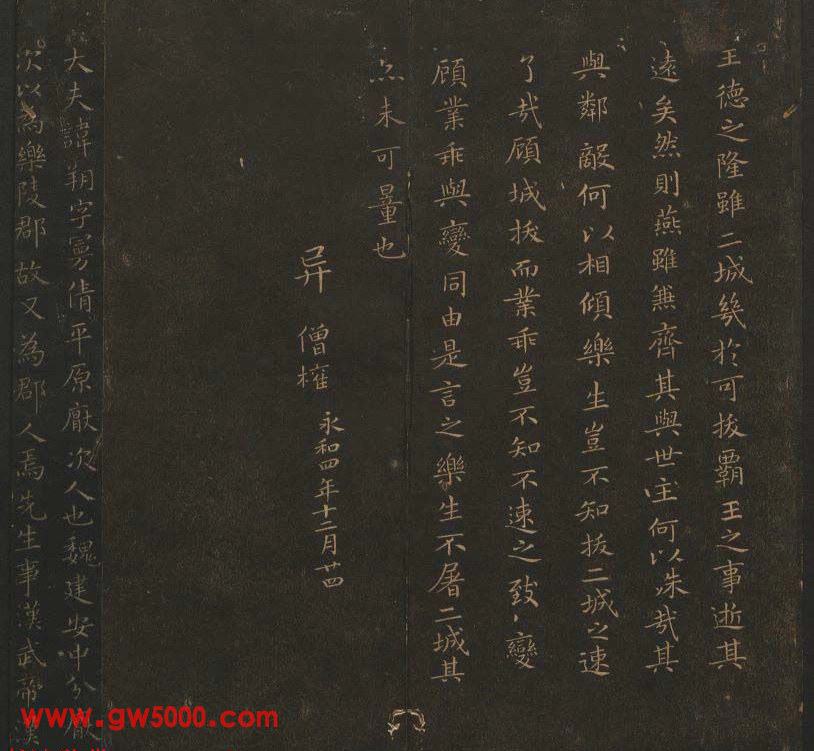 王德之隆雖二城幾於可拔霸王之事逝其
遠矣然則燕雖兼齊其與世主何以殊哉其
與鄰敵何以相傾樂生豈不知拔二城之速
了哉顧城拔而業乖豈不知不速之致變
顧業乖與變同由是言之樂生不屠二城其
亦未可量也
异 僧權
永和四年十二月廿四
大夫諱朔字曼倩平原厭次人也魏建安中分厭
次以為樂陵郡故又為郡人焉先生事漢武帝漢
www.gw5000.com